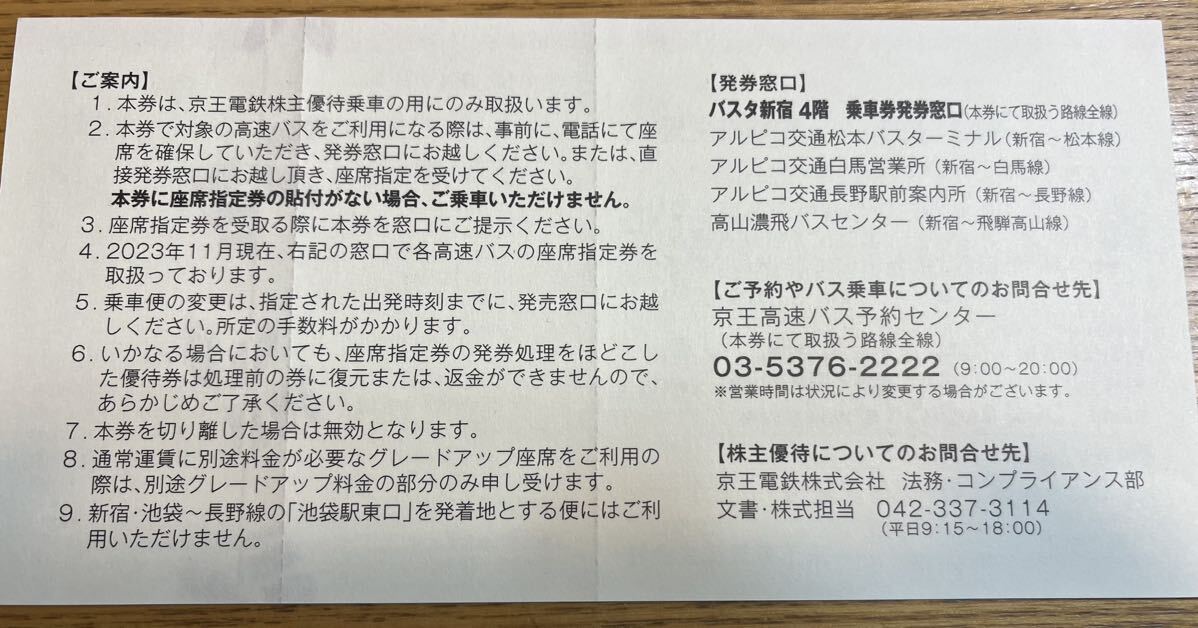 【ご案内】
1．本券は、京王電鉄株主優待乗車の用にのみ取扱います。
2．本券で対象の高速バスをご利用になる際は、事前に、電話にて座
席を確保していただき、発券窓口にお越しください。または、直
接発券窓口にお越し頂き、座席指定を受けてください。
本券に座席指定券の貼付がない場合、ご乗車いただけません。
3．座席指定券を受取る際に本券を窓口にご提示ください。
4．2023年11月現在、右記の窓口で各高速バスの座席指定券を
取扱っております。
5．乗車便の変更は、指定された出発時刻までに、発売窓口にお越
しください。所定の手数料がかかります。
6．いかなる場合においても、座席指定券の発券処理をほどこし
た優待券は処理前の券に復元または、返金ができませんので、
あらかじめご了承ください。
7．本券を切り離した場合は無効となります。
8．通常運賃に別途料金が必要なグレードアップ座席をご利用の
際は、別途グレードアップ料金の部分のみ申し受けます。
9．新宿・池袋～長野線の「池袋駅東口」を発着地とする便にはご利
用いただけません。
【発券窓口】
バスタ新宿 4階 乗車券発券窓口（本券にて取扱う路線全線）
アルピコ交通松本バスターミナル（新宿～松本線）
アルピコ交通白馬営業所（新宿～白馬線）
アルピコ交通長野駅前案内所（新宿～長野線）
高山濃飛バスセンター（新宿～飛騨高山線）
【ご予約やバス乗車についてのお問合せ先】
京王高速バス予約センター
（本券にて取扱う路線全線）
03-5376-2222（9:00～20:00）
※営業時間は状況により変更する場合がございます。
【株主優待についてのお問合せ先】
京王電鉄株式会社 法務・コンプライアンス部
文書・株式担当 042-337-3114
（平日9:15～18:00）